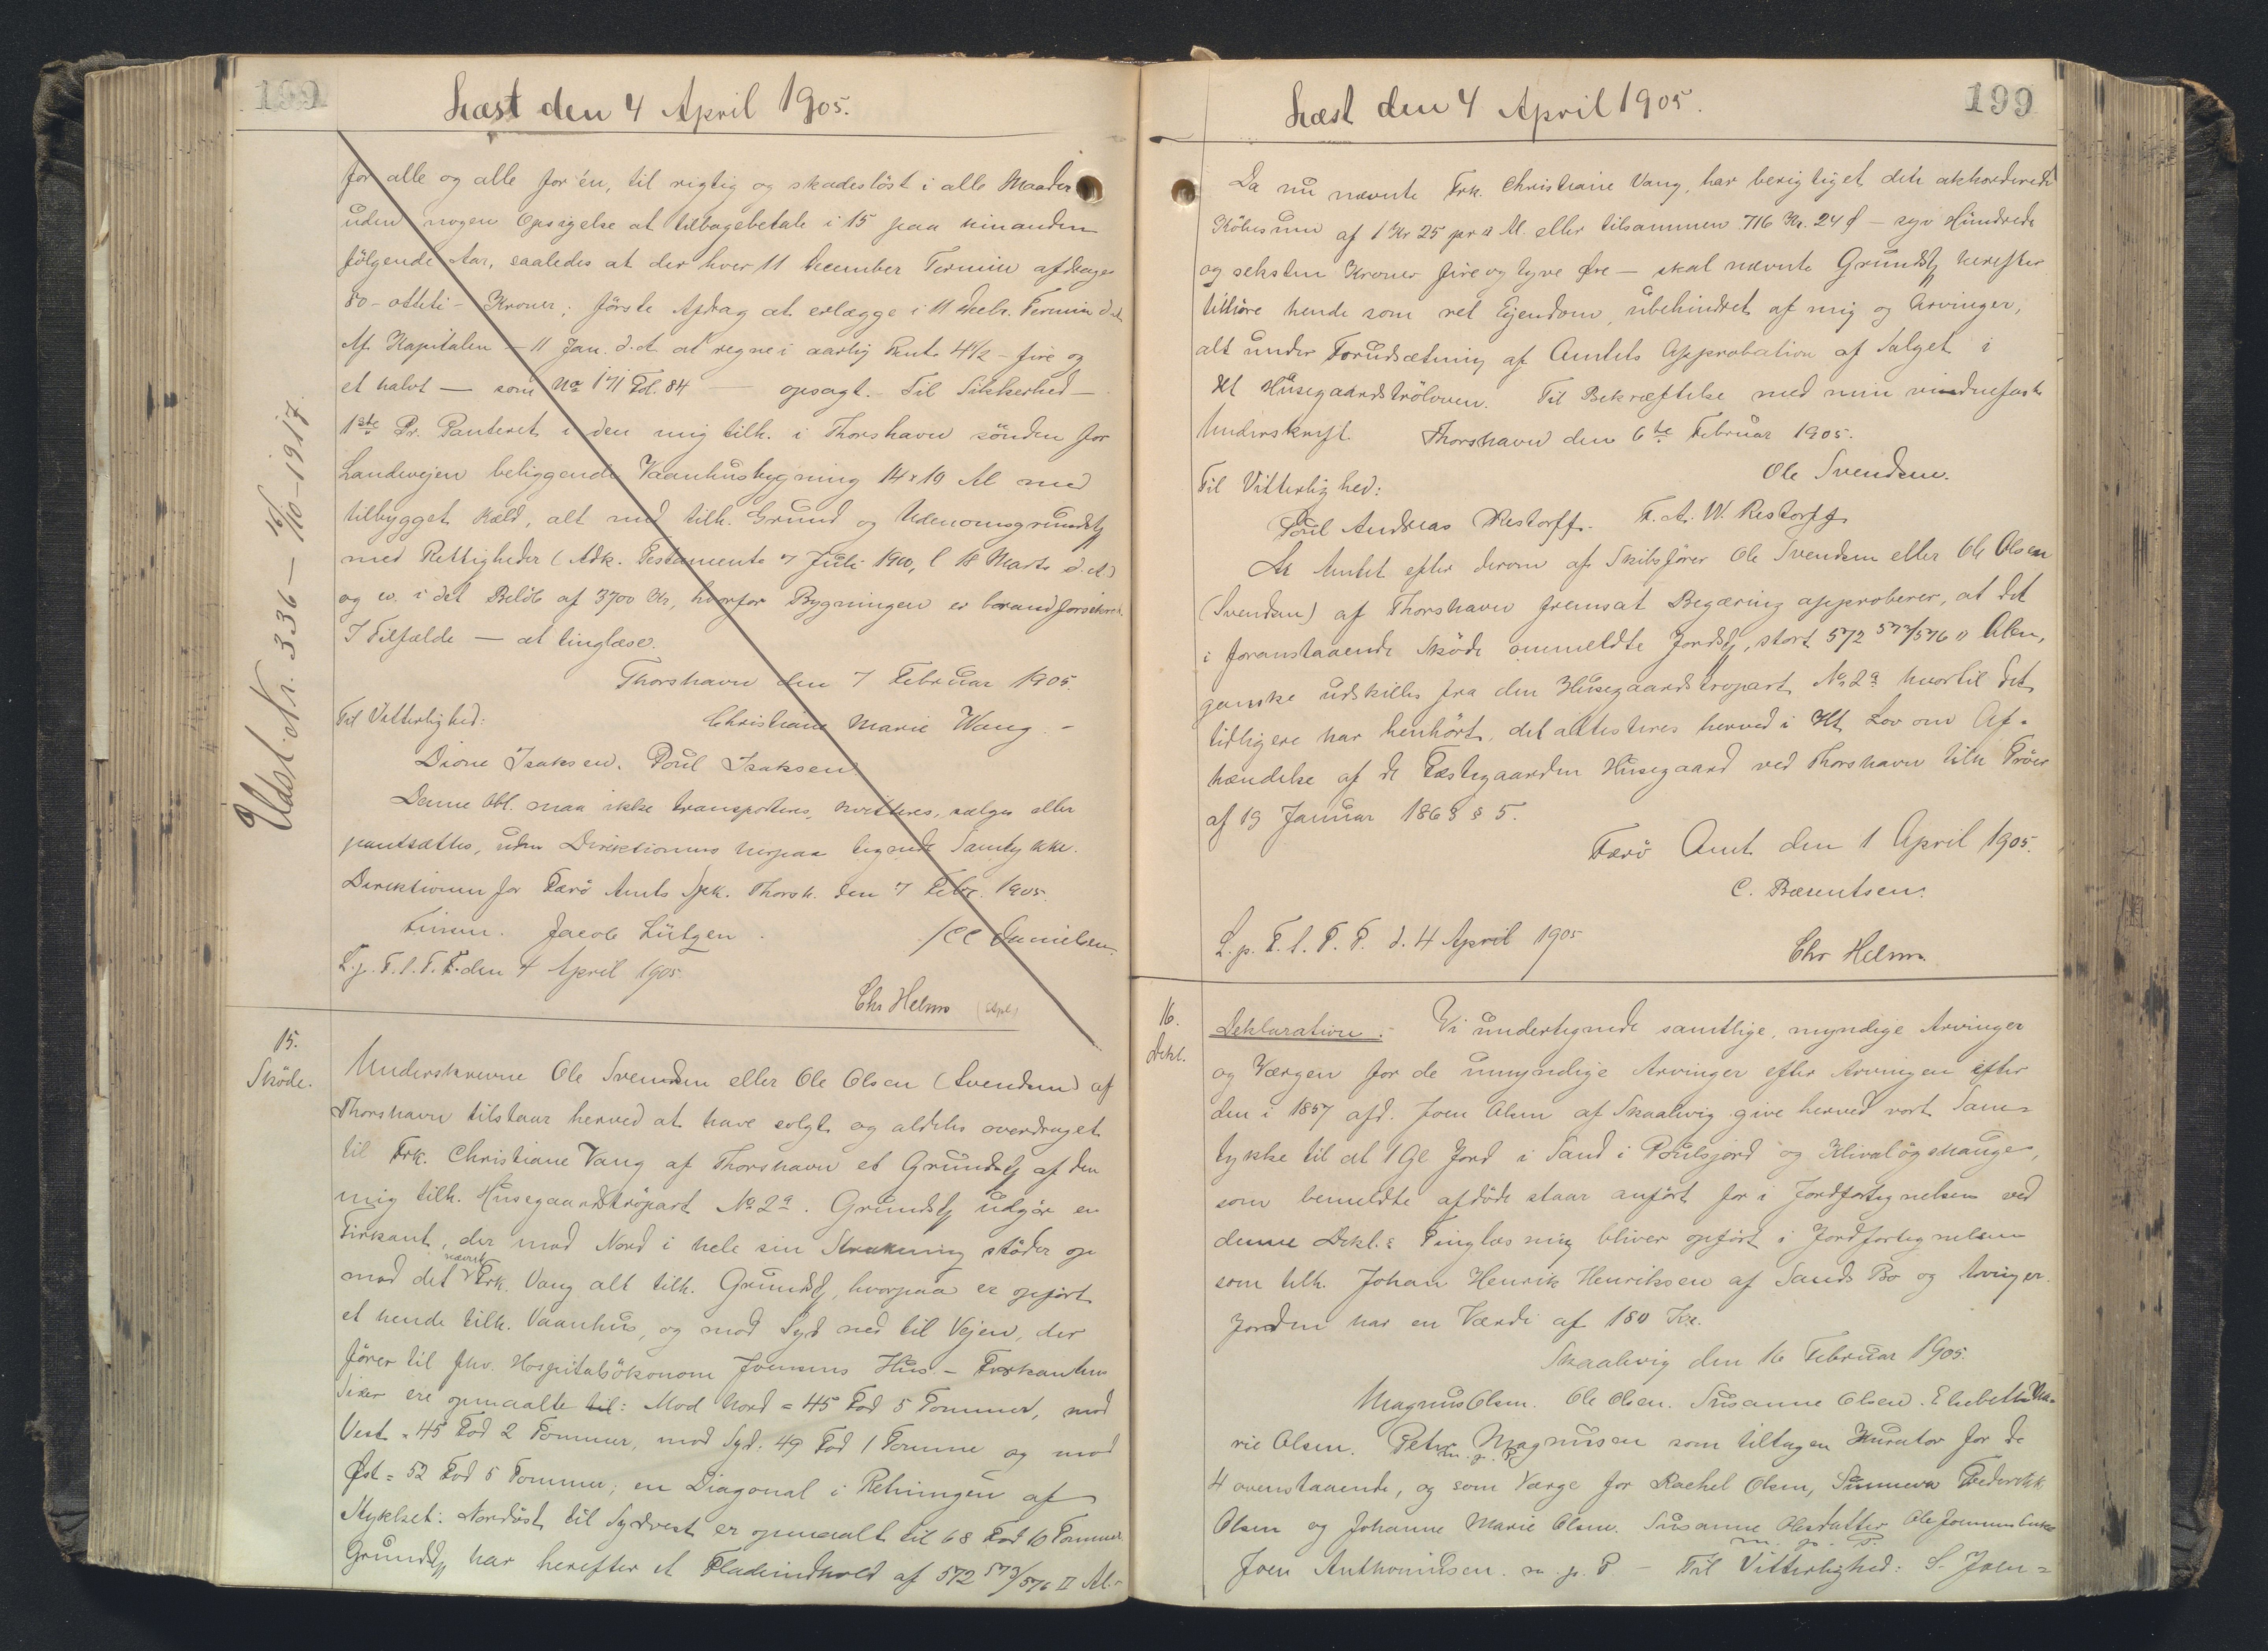 199
Læst den 4 April 1905.
for alle og alle for én, til rigtig og skadesløst i alle Maader
uden nogen Opsigelse at tilbagebetale i 15 paa hinanden
følgende Aar, saaledes at der hver 11 December Termin afdrages
80 - otteti - Kroner; første Afdrag at erlægge i 11 Decbr. Termin d.A.
Af Kapitalen - 11 Jan. d.A. at regne i aarlig Rente 4½ - fire og
et halvt - som No 171 Fol. 84 - opsagt. Til Sikkerhed -
1ste Pr. Panteret i den mig tilh. i Thorshavn sønden for
Landevejen beliggende Vaanhusbygning 14 x 19 Al med
tilbygget Kæld, alt med tilh. Grund og Udenomsgrundst
med Rettigheder (Adk. Testamente 7 Juli 1900, l 18 Marts d.A.)
og ev. i det Beløb af 3700 Kr, hvorfor Bygningen er brandforsikret.
I Tilfælde - at tinglæse.
Thorshavn den 7 Februar 1905.
Til Vitterlighed: Christiane Marie Wang. -
Dione Isaksen. Poul Isaksen
Denne Obl. maa ikke transporteres, kvitteres, sælges eller
pantsættes, uden Direktionens herpaa tegnede Samtykke.
Direktionen for Færø Amts Spk. Thorsh. den 7 Febr. 1905.
Finsen. Jacob Lützen. / CC Danielsen.
L.p.T.f.T.T. den 4 April 1905.
Chr Helms
Udst. Nr. 336 - 16/10 - 1917.
15.
Skøde.
Underskrevne Ole Svendsen eller Ole Olsen (Svendsen) af
Thorshavn tilstaar herved at have solgt og aldeles overdraget
til Frk. Christiane Vang af Thorshavn et Grundst af den
mig tilh. Husegaardstrøpart No 2a. Grundst udgør en
Firkant, der mod Nord i hele sin Strækning støder op
mod det nævnte Frk. Vang alt tilh. Grundst, hvorpaa er opført
et hende tilh. Vaanhus, og mod Syd ned til Vejen, der
fører til fhv. Hospitalsøkonom Joensens Hus. - Firkantens
Sider ere opmaalte til: Mod Nord = 45 Fod 5 Tommer, mod
Vest = 45 Fod 2 Tommer, mod Syd: 49 Fod 1 Tomme og mod
Øst = 52 Fod 5 Tommer; en Diagonal i Retningen af
Stykket: Nordøst til Sydvest er opmaalt til 68 Fod 10 Tommer.
Grundst har herefter et Fladeindhold af 572 573/576 □ Al. -
Læst den 4 April 1905.
199
Da nu nævnte Frk. Christiane Vang, har berigtiget den akkorderede
Købesum af 1 Kr 25 pr □ Al. eller tilsammen 716 Kr. 24 Ø - syv Hundrede
og seksten Kroner fire og tyve Øre - skal nævnte Grundst herefter
tilhøre hende som ret Ejendom, ubehindret af mig og Arvinger,
alt under Forudsætning af Amtets Approbation af Salget i
Ht Husegaardstrøloven. Til Bekræftelse med min vidnefaste
Underskrift. Thorshavn den 6te Februar 1905.
Ole Svendsen.
Til Vitterlighed:
Poul Andreas Restorff. F. A. W. Restorff
At Amtet efter derom af Skibsfører Ole Svendsen eller Ole Olsen
(Svendsen) af Thorshavn fremsat Begæring approberer, at det
i foranstaaende Skøde ommeldte Jordst, stort 572 573/576 □ Alen,
ganske udskilles fra den Husegaardstrøpart No 2a hvortil det
tidligere har henhørt, det attesteres herved i Ht Lov om Af-
hændelse af de Fæstegaarden Husegaard ved Thorshavn tilh Trøer
af 19 Januar 1863 § 5.
Færø Amt den 1 April 1905.
C. Bærentsen.
L.p.T.f.T.T. d. 4 April 1905
Chr Helms
16.
Dekl.
Deklaration: Vi undertegnede samtlige, myndige Arvinger
og Værgen for de umyndige Arvinger efter Arvingen efter
den i 1857 afd. Joen Olsen af Skaalevig give herved vort Sam-
tykke til at 1 Gl Jord i Sand i Poulsjord og
som bemeldte afdøde staar anført for i Jordfortegnelsen ved
denne Dekl.s Tinglæsning bliver opført i Jordfortegnelsen
som tilh. Johan Henrik Henriksen af Sands Bø og Arvinger.
Jorden har en Værdi af 180 Kr.
Skaalevig den 16 Februar 1905.
Magnus Olsen. Ole Olsen. Susanne Olsen. Elsebeth Ma-
rie Olsen. Peter Magnusen som tiltagen Kurator for de
m. p. P.
4 ovenstaaende, og som Værge for Rachel Olsen, Sunneva Frederikke
Olsen og Johanne Marie Olsen. Susanne Olesdatter Ole Joensens Enke
m. p. P.
Joen Anthoniusen. m. p. P - Til Vitterlighed: S. Joen-